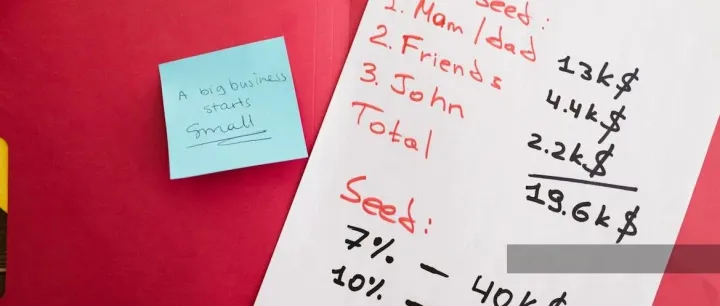 A big business
starts
small
Seed:
1. Mam/dad 13k$
2. Friends 4.4k$
3. John 2.2k$
Total 19.6k$
Seed:
7% - 40k$
10% -